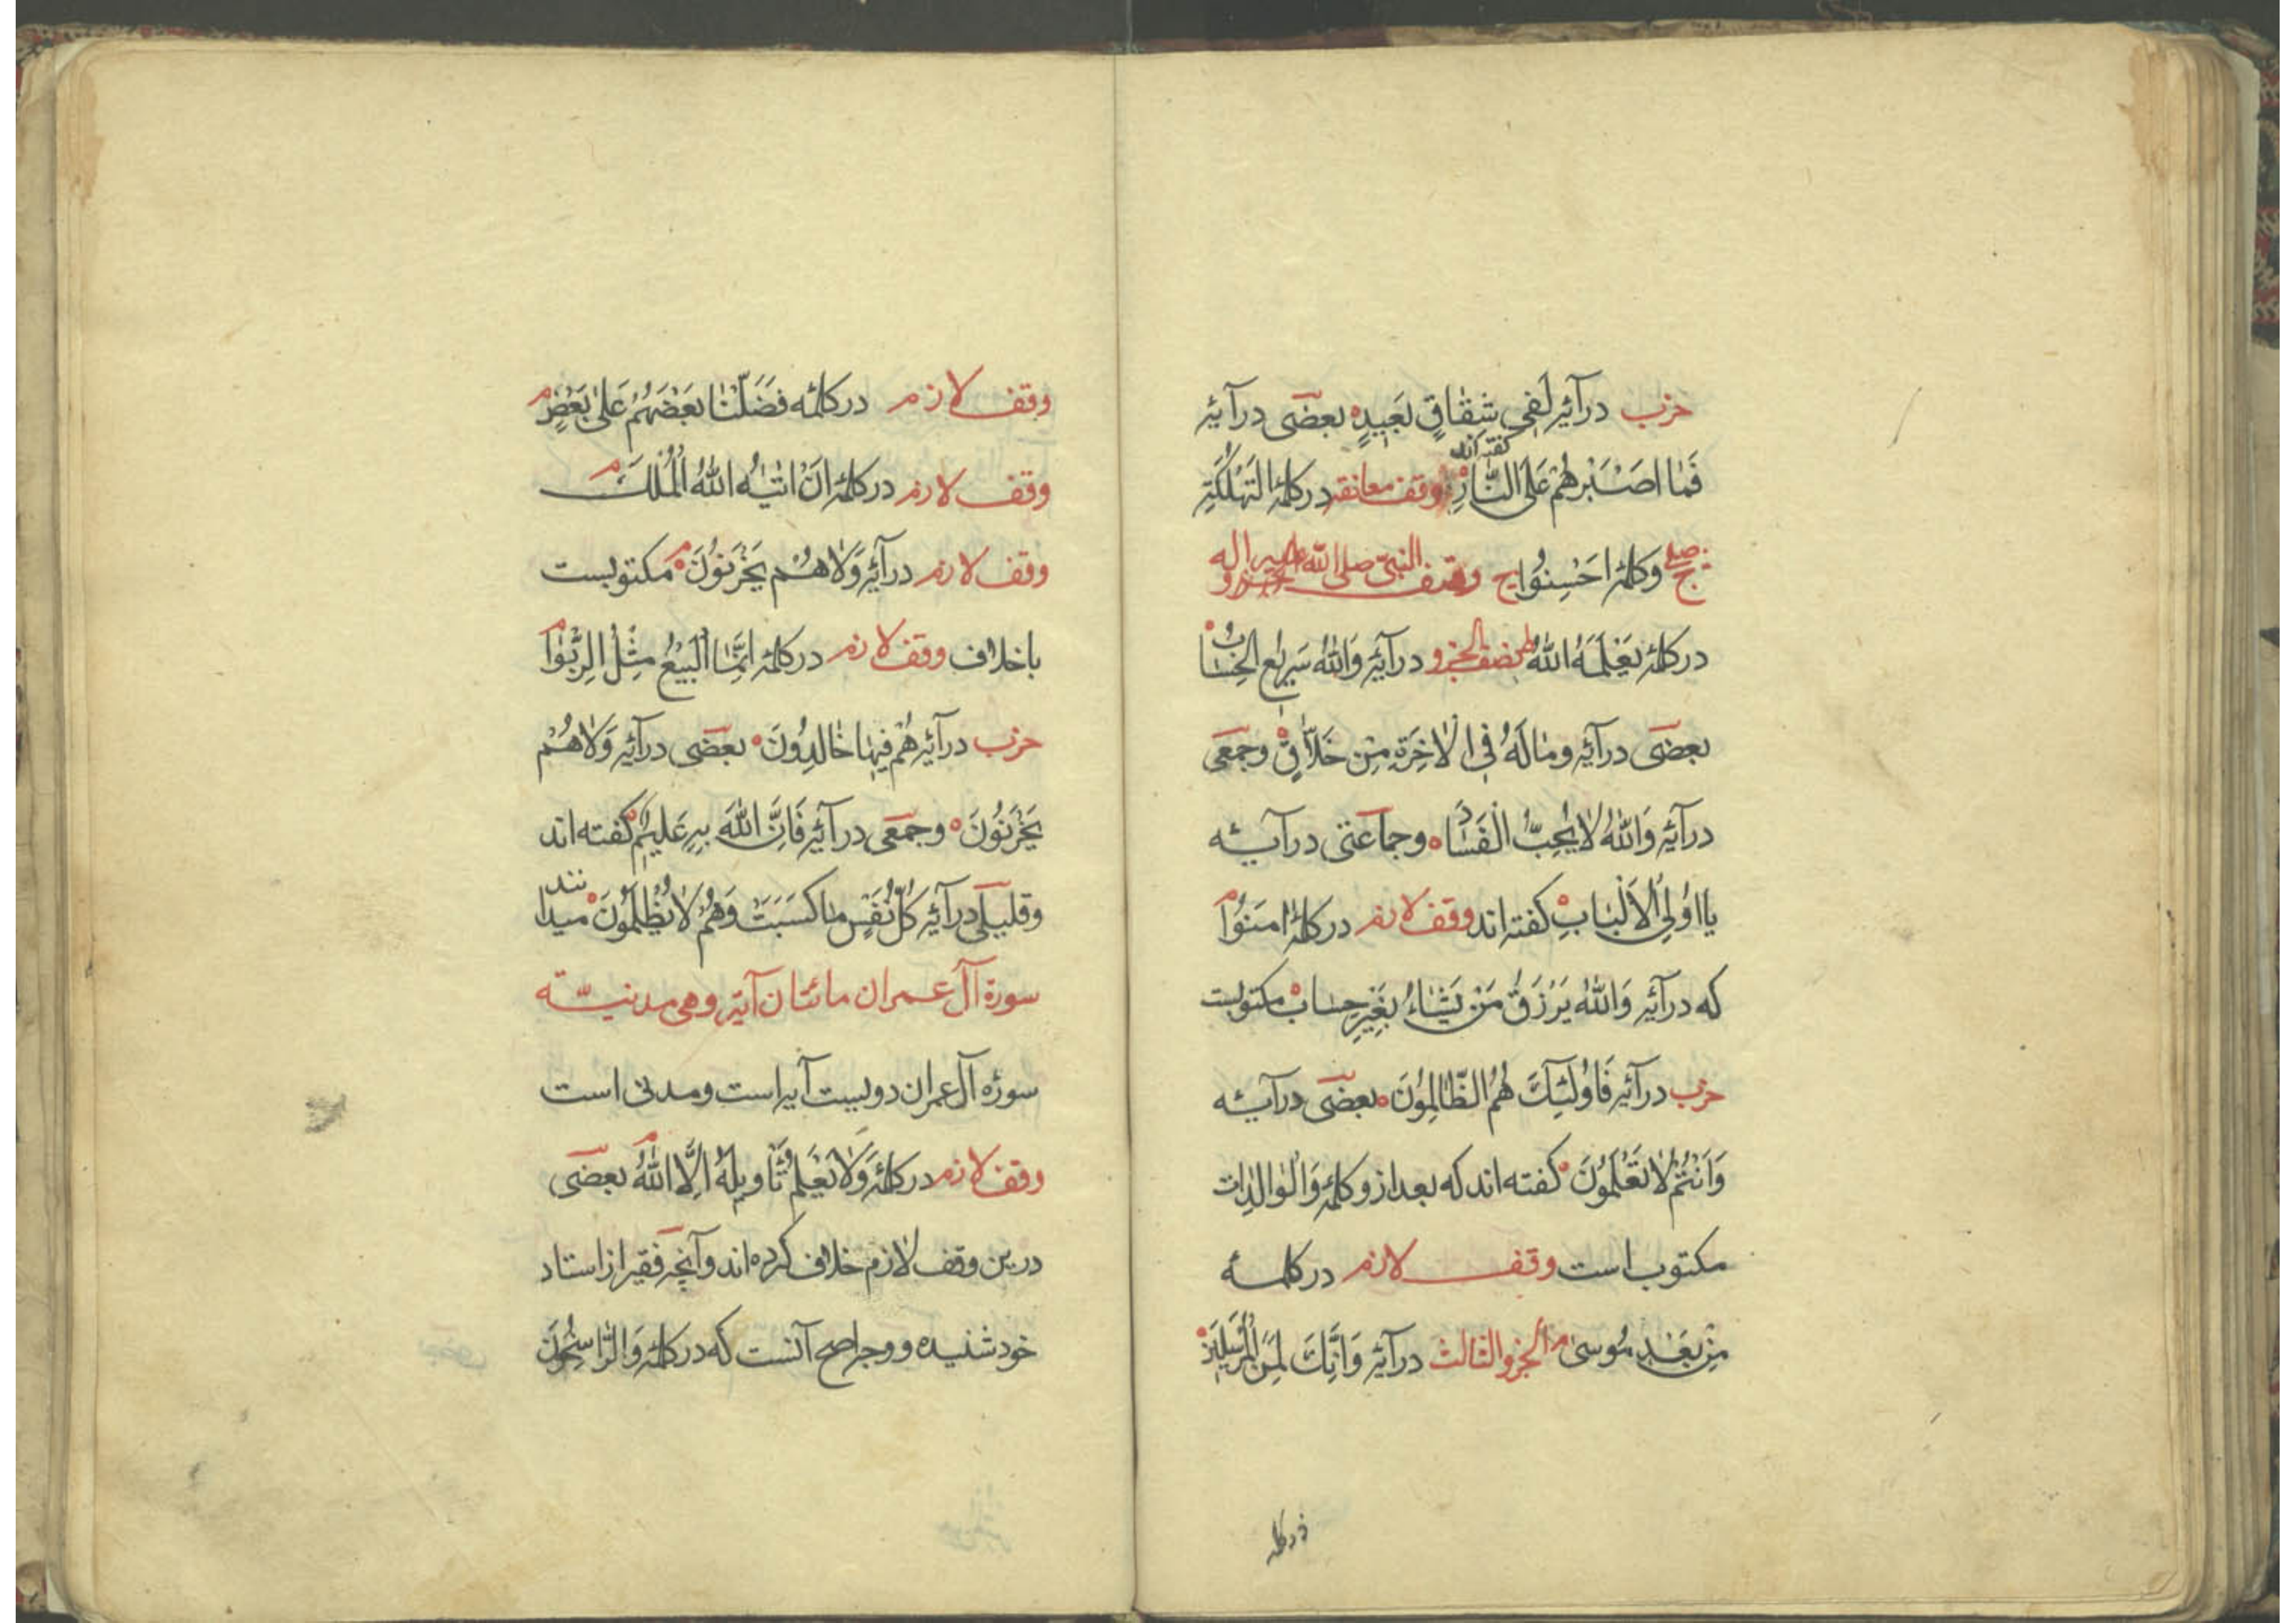 حزب در آیه لَفِی شِقَاقٍ بَعِیدٍ بعضی در آیه
فَمَا اَصْبَرَهُمْ عَلَی النَّارِ گفته‌اند وقف معانقه در کلمه التَّهْلُکَةِ
صلی ج وکلمه اَحْسِنُوا ج وقف النبی صلی الله علیه واله
در کلمه یَعْلَمْهُ اللهُ ط نصف الجزو در آیه وَاللهُ سَرِیعُ الْحِسَابِ
بعضی در آیه وَمَا لَهُ فِی الْاٰخِرَةِ مِنْ خَلَاقٍ وجمعی
در آیه وَاللهُ لَا یُحِبُّ الْفَسَادَ وجماعتی در آیه
یَا اُولِی الْاَلْبَابِ گفته‌اند وقف لازم در کلمه اٰمَنُوا م
که در آیه وَاللهُ یَرْزُقُ مَنْ یَشَاءُ بِغَیْرِ حِسَابٍ مکتوبست
حزب در آیه فَاُولٰئِکَ هُمُ الظَّالِمُونَ بعضی در آیه
وَاَنْتُمْ لَا تَعْلَمُونَ گفته‌اند که بعد ازو کلمه وَالْوَالِدَات
مکتوب است وقف لازم در کلمه
مِنْ بَعْدِ مُوسٰی م الجزو الثالث در آیه وَاِنَّکَ لَمِنَ الْمُرْسَلِینَ
در کلمه
وقف لازم در کلمه فَضَّلْنَا بَعْضَهُمْ عَلٰی بَعْضٍ م
وقف لازم در کلمه اَنْ اٰتٰیهُ اللهُ الْمُلْکَ م
وقف لازم در آیه وَلَا هُمْ یَحْزَنُونَ م مکتوبست
باخلاف وقف لازم در کلمه اِنَّمَا الْبَیْعُ مِثْلُ الرِّبٰوا م
حزب در آیه هُمْ فِیهَا خَالِدُونَ بعضی در آیه وَلَا هُمْ
یَحْزَنُونَ وجمعی در آیه فَاِنَّ اللهَ بِهِ عَلِیمٌ گفته‌اند
وقلیلی در آیه کُلُّ نَفْسٍ مَا کَسَبَتْ وَهُمْ لَا یُظْلَمُونَ میدانند
سورة آل عمران مائتان آیة وهی مدنیّة
سوره آل عمران دویست آیه است ومدنی است
وقف لازم در کلمه وَلَا یَعْلَمُ تَاْوِیلَهُ اِلَّا اللهُ م بعضی
درین وقف لازم خلاف کرده‌اند وآنچه فقیر از استاد
خود شنیده ووجه اصح آنست که در کلمه وَالرَّاسِخُونَ